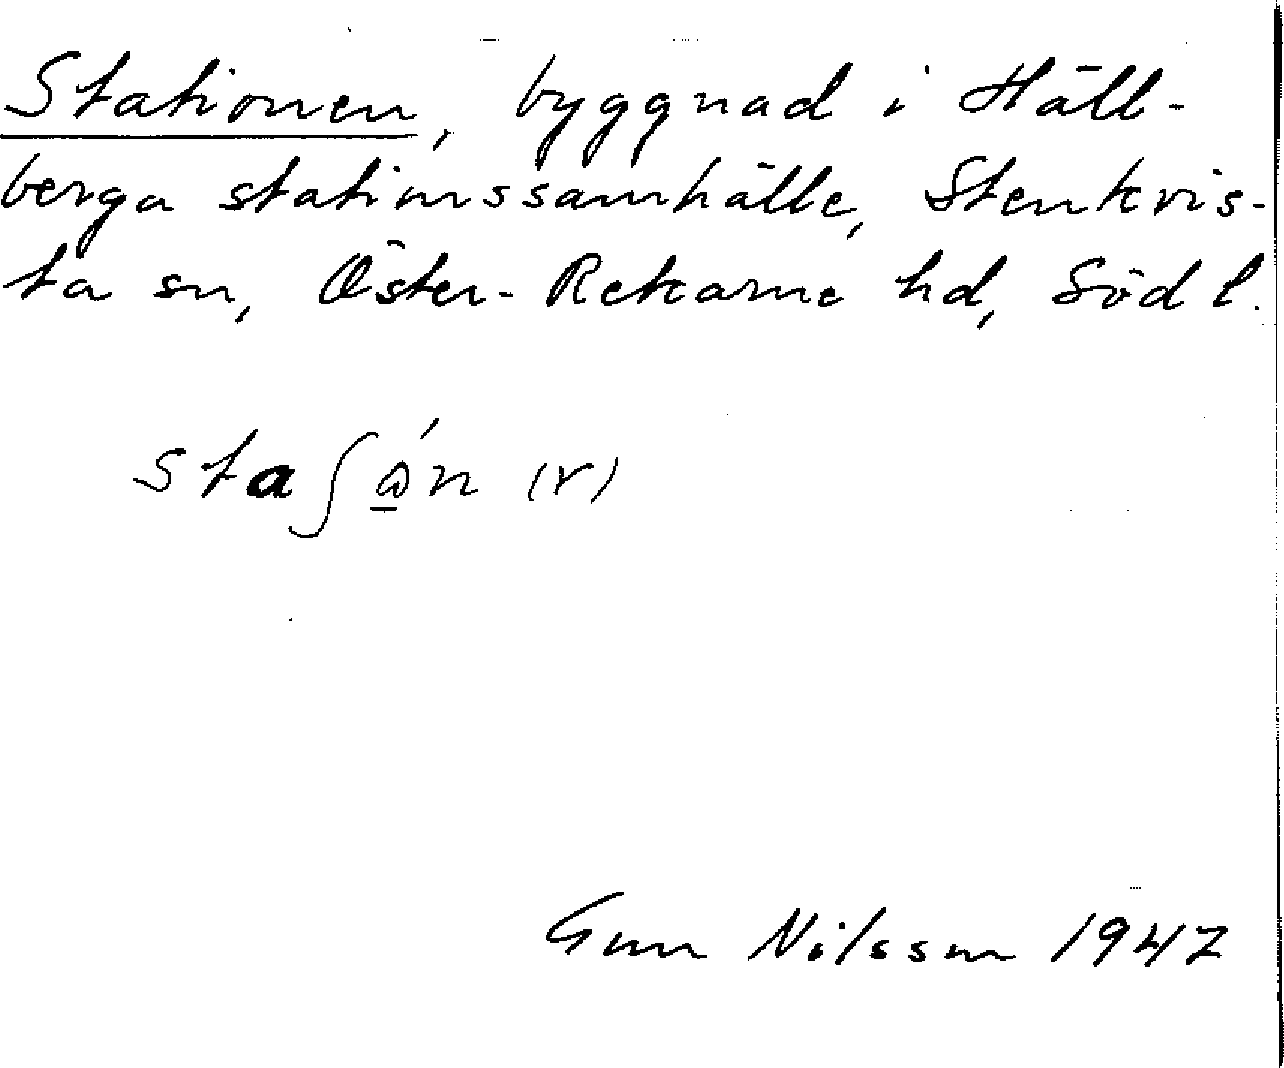 Stationen, byggnad i Häll-
berga stationssamhälle, Stenkvis-
ta sn, Öster-Rekarne hd, Söd l.
staʃώ̲n (r)
Gun Nilsson 1947